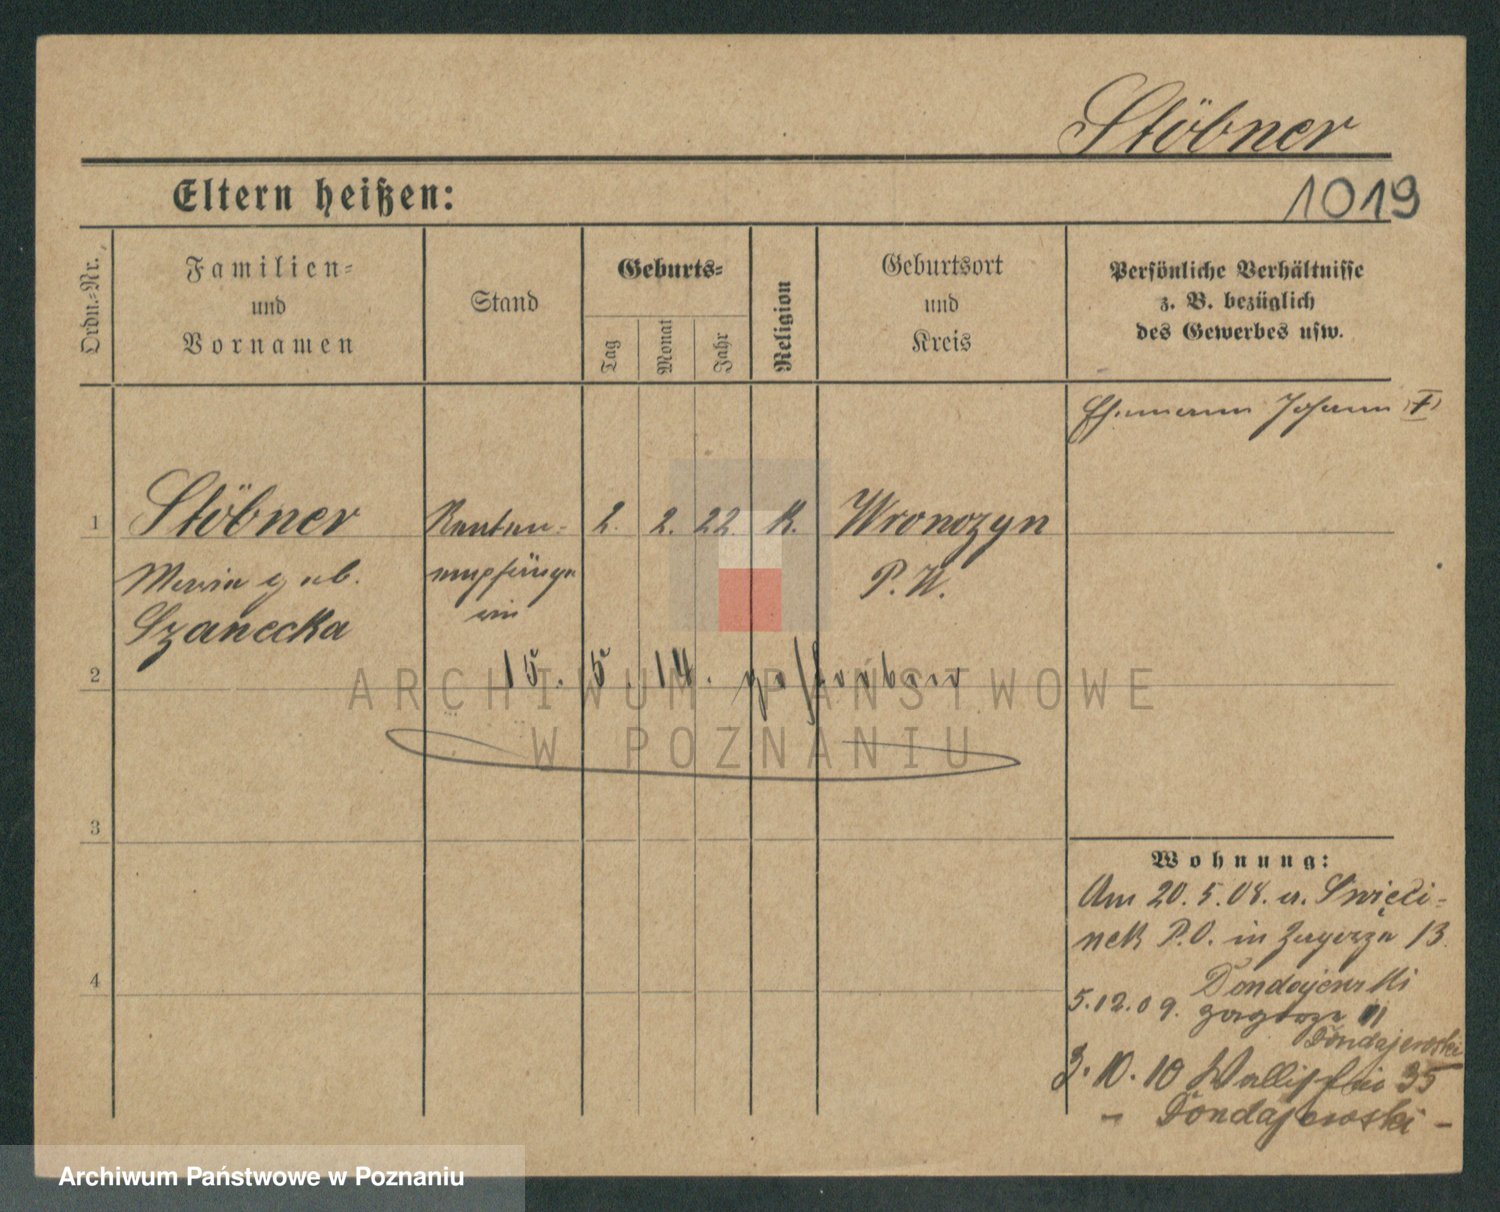 Stöbner
Eltern heißen:
1019
Ordn.-Nr.
Familien-
und
Vornamen
Stand
Geburts-
Tag
Monat
Jahr
Religion
Geburtsort
und
Kreis
Persönliche Verhältnisse
z. B. bezüglich
des Gewerbes usw.
Ehemann Johann (†)
1
Stöbner
Renten-
2. 2. 22. K.
Wronczyn
Maria geb.
empfänge
P. W.
Szanecka
rin
2
15. 5. 14. gestorben
ARCHIWUM PAŃSTWOWE
W POZNANIU
3
Wohnung:
Am 20. 5. 08. a. Święci-
nek P.O. in Zagorze 13.
4
Dondajewski
5.12.09. Zagorze 11
Dondajewski
3. 10. 10 Wallischei 35
- Dondajewski -
Archiwum Państwowe w Poznaniu